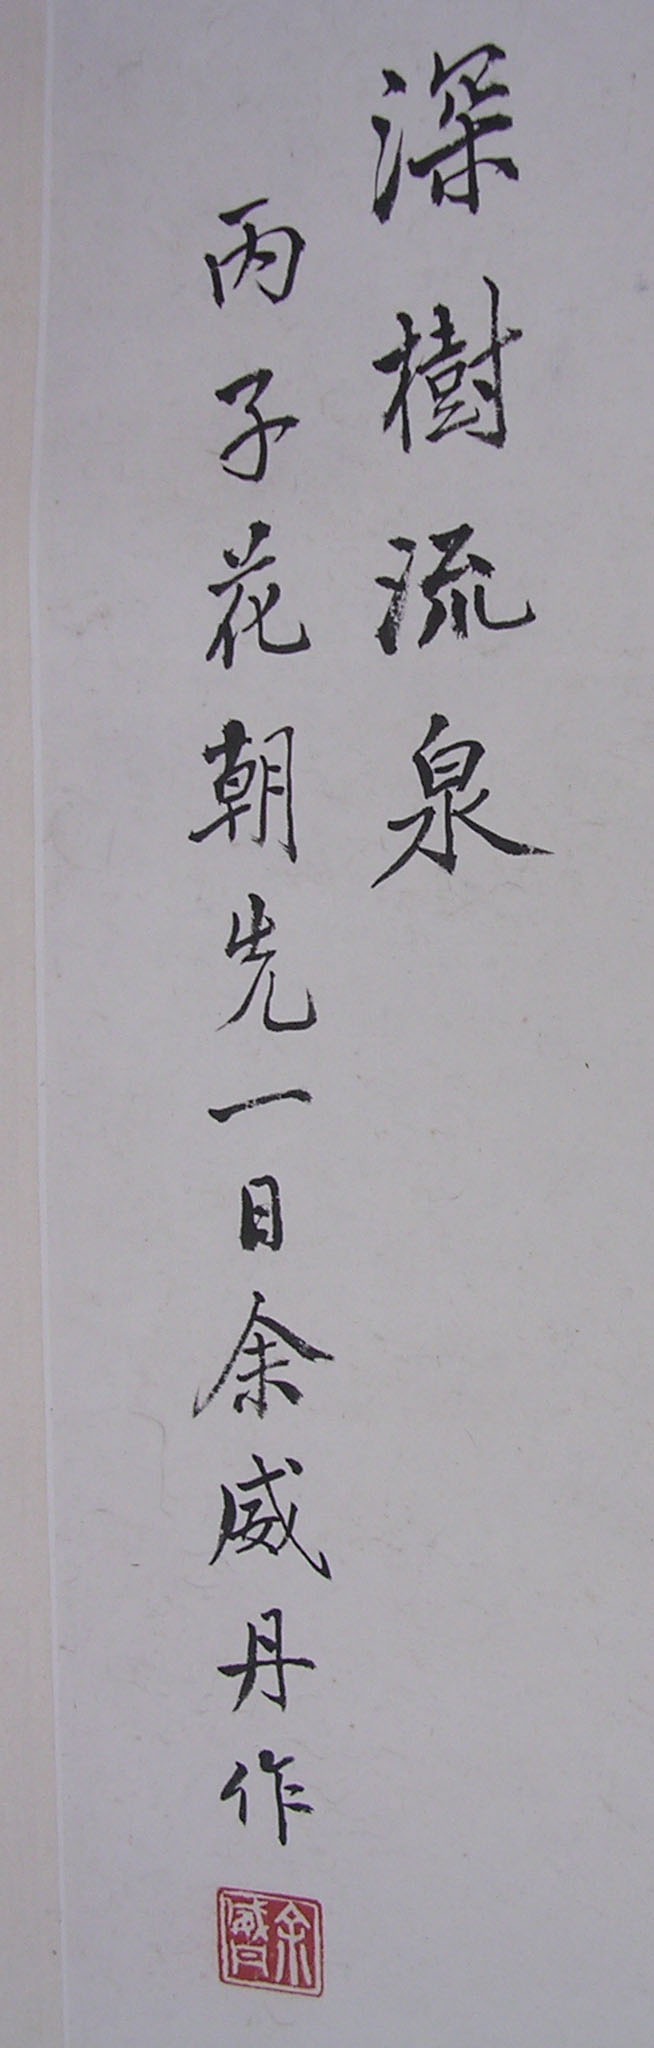 深樹流泉
丙子花朝先一日余威丹作
余威丹